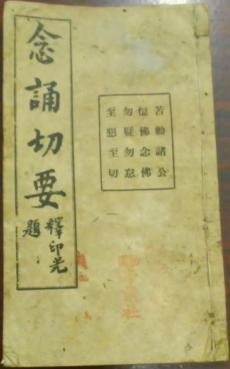 念誦切要
釋印光
題
苦勸諸公
憶佛念佛
勿疑勿怠
至懇至切